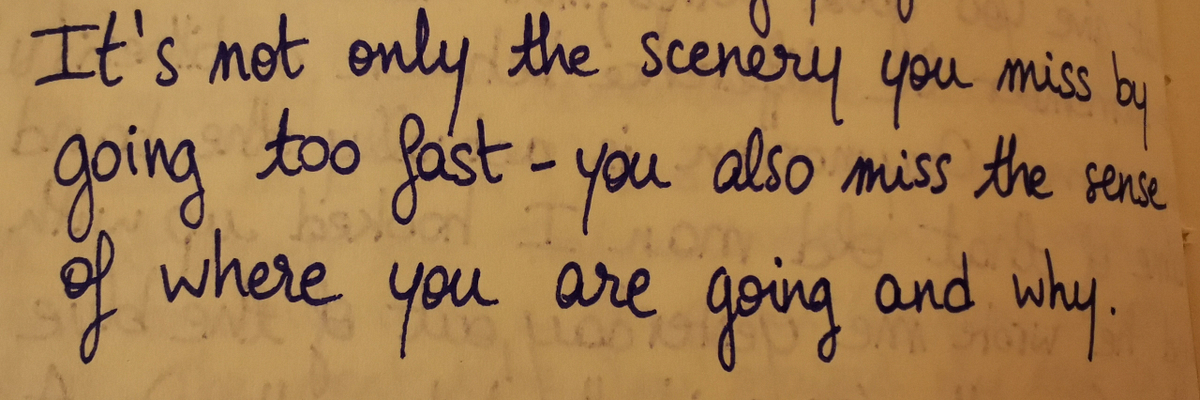 It's not only the scenery you miss by
going too fast - you also miss the sense
of where you are going and why.